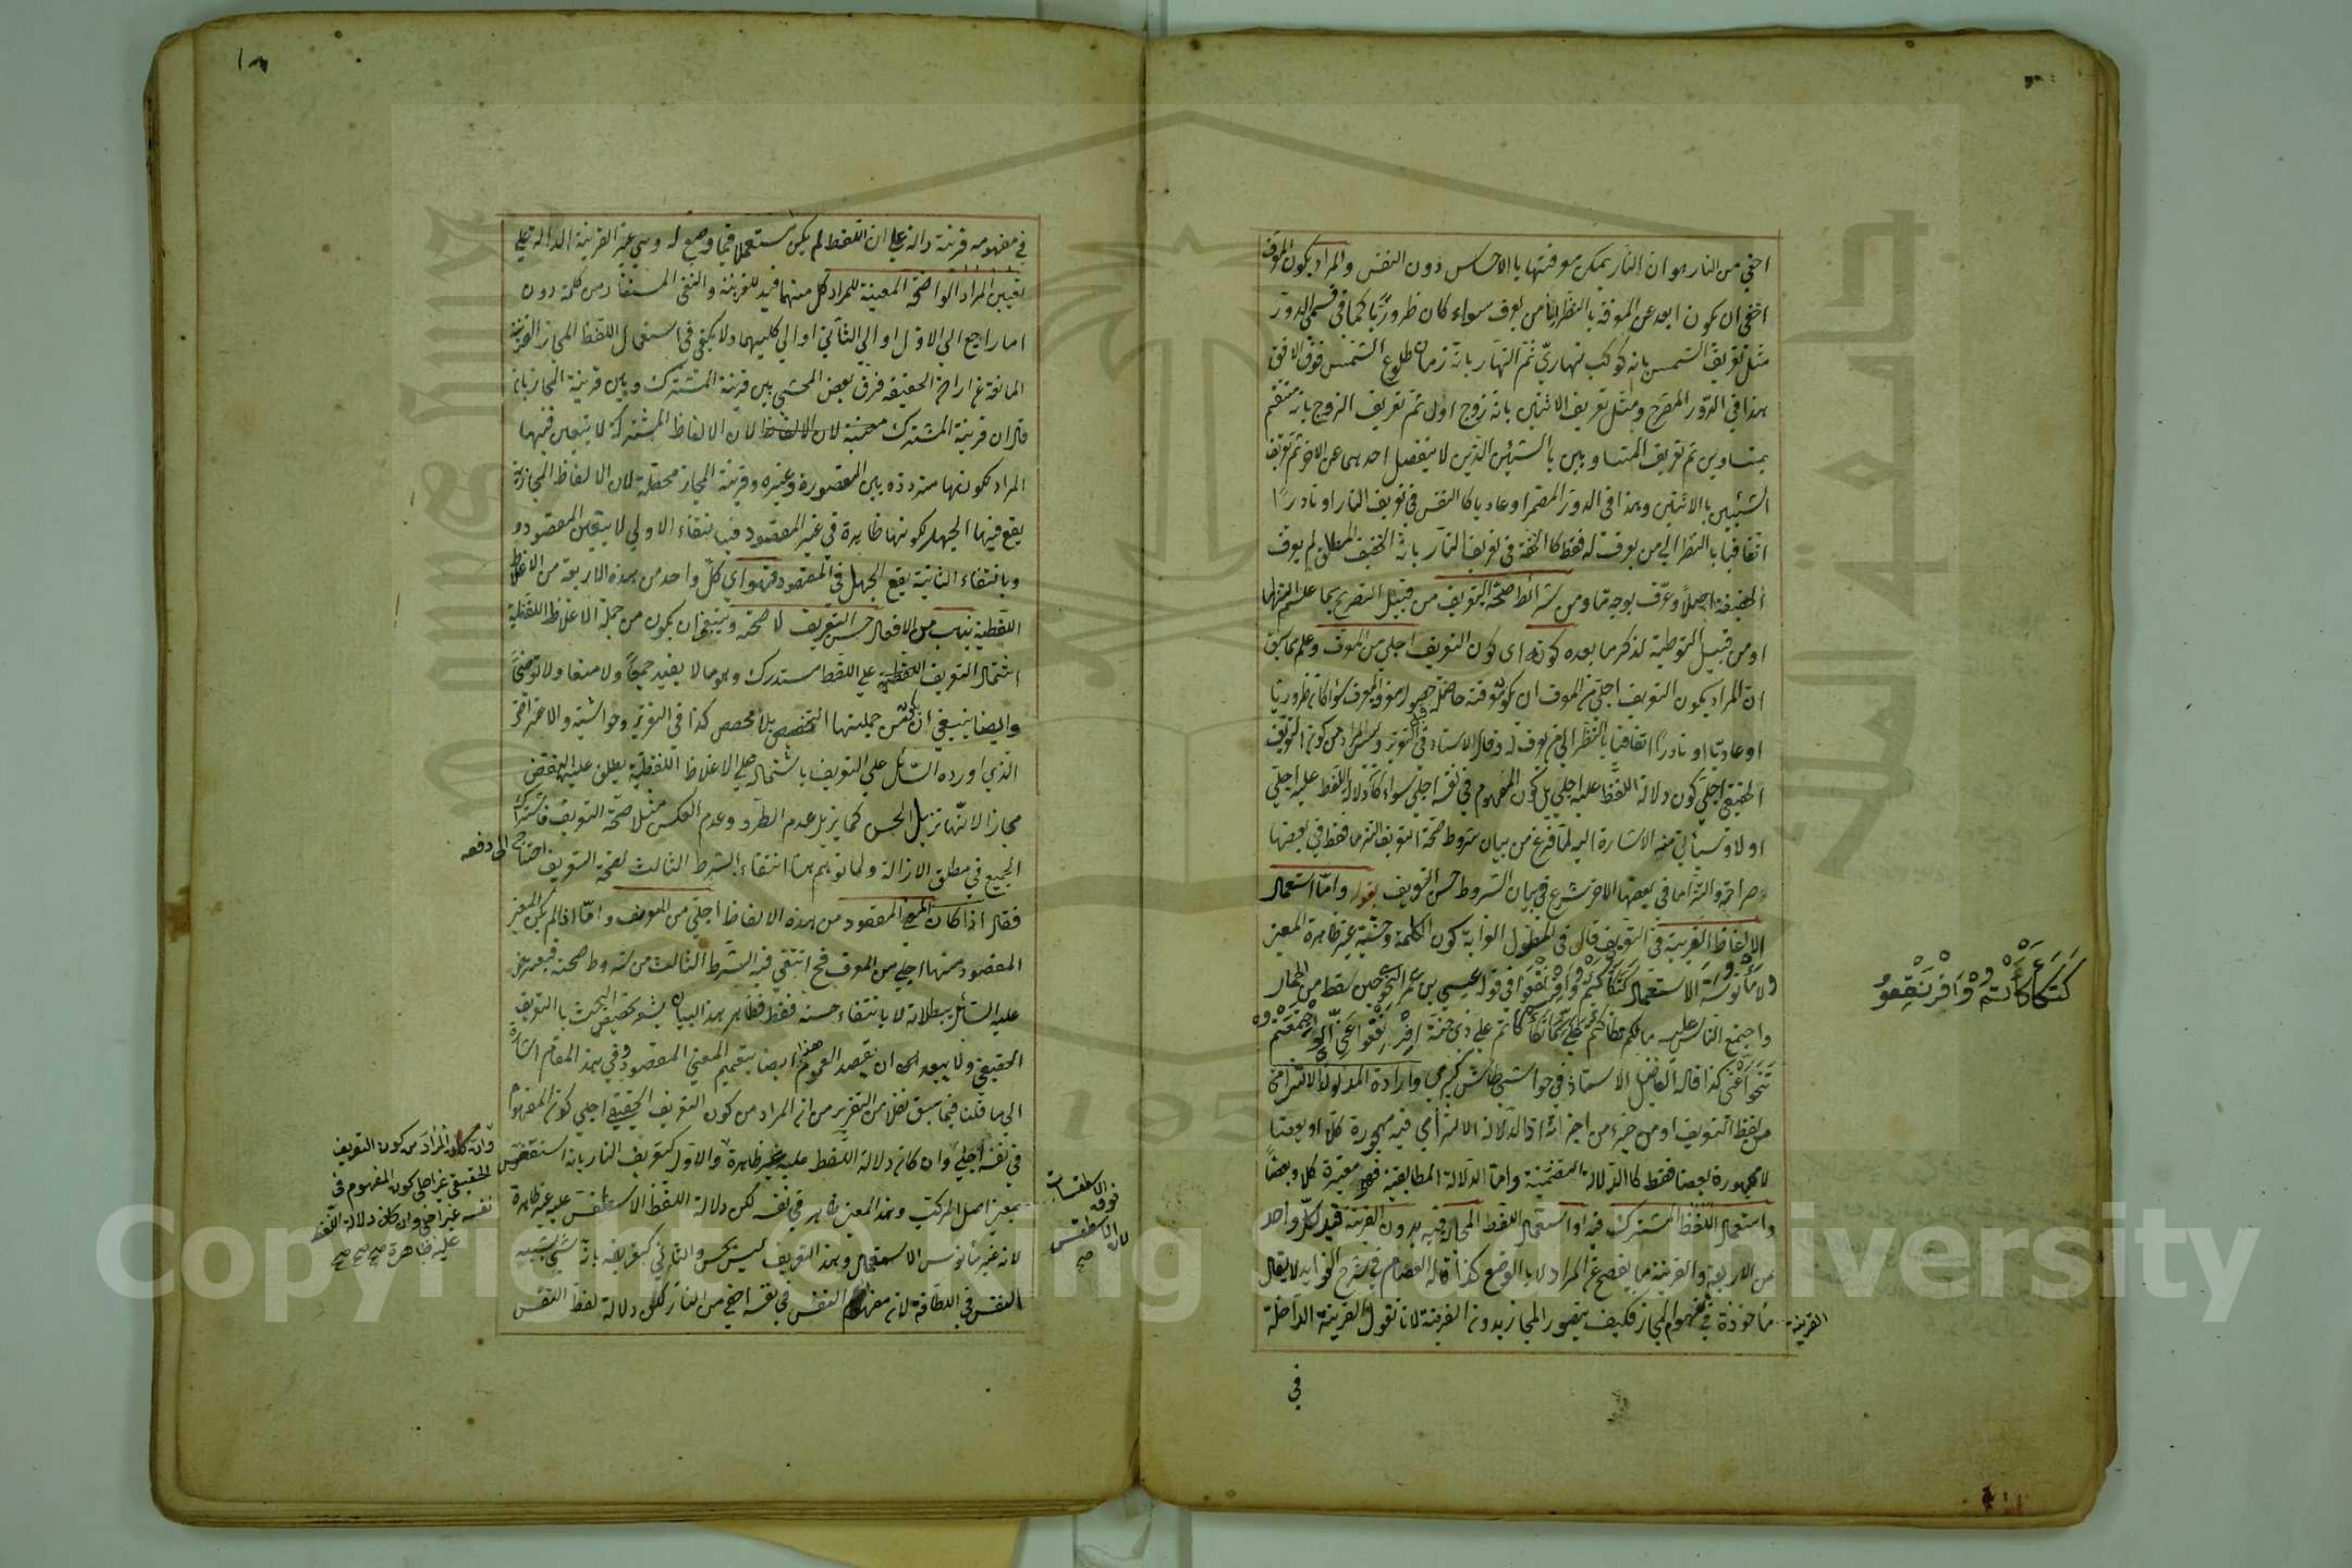 اخفي من النار هو ان النار يمكن معرفتها بالاحساس دون النفس والمراد بكون المعرف
اخفي ان يكون ابعد عن المعرفة بالنظر الي من يعرف سواء كان ضروريا كما في قسمي الدور
مثل تعريف الشمس بانه كوكب نهاري ثم النهار بانه زمان طلوع الشمس فوق الافق
هذا في الدور المصرح ومثل تعريف الاثنين بانه زوج اول ثم تعريف الزوج بانه منقسم
بمتساويين ثم تعريف المتساويين بالشيئين الذين لا ينفصل احدهما عن الاخر ثم تعريف
الشيئين بالاثنين وهذا في الدور المضمر او عاديا كالنفس في تعريف النار او نادرا
اتفاقيا بالنظر الي من يعرف له فقط كالخفة في تعريف النار بانه الخفيف المطلق لم يعرف
الحقيقة اجمالا وعرف بوجه ما ومن شرائط صحة التعريف من قبيل التصريح بما علم التزاما
او من قبيل التوطية لذكر ما بعده كونه اي كون التعريف اجلي من المعرف وعلم مما سبق
ان المراد بكون التعريف اجلي من المعرف ان يكون معرفته حاصلة قبل معرفة المعرف سواء كانت ضروريا
او عاديا او نادرا اتفاقيا بالنظر الي من يعرف له وقال الاستاد في التقرير وليس المراد من كون التعريف
الحقيقي اجلي كون دلالة اللفظ عليه اجلي بل كون المفهوم في نفسه اجلي سواء كان دلالة اللفظ عليه اجلي
اولا وسيأتي منه الاشارة اليه لما فرغ من بيان شروط صحة التعريف التزاما فقط في بعضها
وصراحة والتزاما في بعضها الاخر شرع في بيان الشروط حسن التعريف بقوله واما استعمال
الالفاظ الغريبة في التعريف قال في المطول الغرابة كون الكلمة وحشية غير ظاهرة المعني
ولا مأنوسة الاستعمال كتكأكأتم وافرنقعوا في قول عيسي بن عمر النحوي حين سقط من الحمار
واجتمع الناس عليه ما لكم تكأكأتم علي كما تكأكأتم علي ذي جنة افرنقعوا عني اي اجتمعتم
تنحوا عني كذا قاله الفاضل الاستاذ في حواشي طاش كبري وارادة المدلول الالتزامي
من لفظ التعريف او من جزء من اجزائه اذ الدلالة الالتزامي فيه مهجورة كلا او بعضا
لا مهجورة بعضا فقط كالدلالة التضمنية واما الدلالة المطابقية فهي معتبرة كلا وبعضا
واستعمال اللفظ المشترك فيه او استعمال اللفظ المجاز فيه بدون القرينة قيد لكل واحد
من الاربعة والقرينة ما يفصح عن المراد لا بالوضع كذا قاله العصام في شرح الفوايد لا يقال
ماخوذة في مفهوم المجاز فكيف يتصور المجاز بدون القرينة لانا نقول القرينة الداخلة
القرينة
في
كتكأكأتم وافرنقعوا
في مفهومه قرينة دالة علي ان اللفظ لم يكن مستعملا فيما وضع له وهي غير القرينة الدالة علي
تعيين المراد الواضحة المعينة للمراد كل منهما قيد للقرينة والنفي المستفاد من كلمة دون
اما راجع الي الاول او الي الثاني او الي كليهما ولا يكفي في استعمال اللفظ المجاز القرينة
المانعة عن ارادة الحقيقة فرق بعض المحشي بين قرينة المشترك وبين قرينة المجاز بان
قال ان قرينة المشترك معينة لان الالفاظ لان الالفاظ المشتركة لا يتعين فيها
المراد لكونها مترددة بين المقصورة وغيره وقرينة المجاز محصلة لان الالفاظ المجازية
يقع فيها الجهل لكونها ظاهرة في غير المقصود فبانتفاء الاولي لا يتعين المقصود
وبانتفاء الثانية يقع الجهل في المقصود فهو اي كل واحد من هذه الاربعة من الاغلاط
اللفظية يناسب من الافعال حسن التعريف لا صحته وينبغي ان يكون من جملة الاغلاط اللفظية
اشتمال التعريف اللفظية علي اللفظ مستدرك وهو ما لا يفيد جمعا ولا منعا ولا توضيحا
وايضا ينبغي ان يكون من جملتها التخصص بلا مخصص كذا في التقرير وحواشيه والاعتراض
الذي اورده السائل علي التعريف باشتماله علي الاغلاط اللفظية يطلق عليه النقض
مجازا لانها تزيل الحسن كما يزيل عدم الطرد وعدم العكس مثلا صحة التعريف فاشتراك
الجميع في مطلق الازالة ولما توهم هنا انتفاء الشرط الثالث لصحة التعريف احتاج الي دفعه
فقال اذا كان المعني المقصود من هذه الالفاظ اجلي من المعرف واما اذا لم يكن المعني
المقصود منها اجلي من المعرف فح انتفي فيه الشرط الثالث من شروط صحته فيعترض
عليه السائل ببطلانه لا بانتفاء حسنه فقط فظاهر هذا البيان يشعر تخصيص البحث بالتعريف
الحقيقي ولا يبعد الى ان يقصد العموم هذا ايضا بتعميم المعني المقصود وفي هذا المقام اشارة
الي ما قلنا فيما سبق نقلا من التقرير من ان المراد من كون التعريف الحقيقي اجلي كون المفهوم
في نفسه اجلي وان كان دلالة اللفظ عليه غير ظاهرة والاول كتعريف النار بانه اسطقس
بمعني اصل المركب وهذا المعني ظاهر في نفسه لكن دلالة اللفظ الاسطقس عليه غير ظاهرة
لانه غير مأنوس الاستعمال وهذا التعريف ليس بحسن والثاني كتعريفه بانه شيء شبيه
النفس في اللطافة لان مفهوم النفس في نفسه اخفي من النار لكن دلالة لفظ النفس
وان كان المراد من كون التعريف
الحقيقي غير اجلي كون المفهوم في
نفسه غير اجلي وان كان دلالة اللفظ
عليه ظاهرة صح صح صح
الاسطقسات
فوقه
لان الاسطقس
صح
Copyright © King Saud University